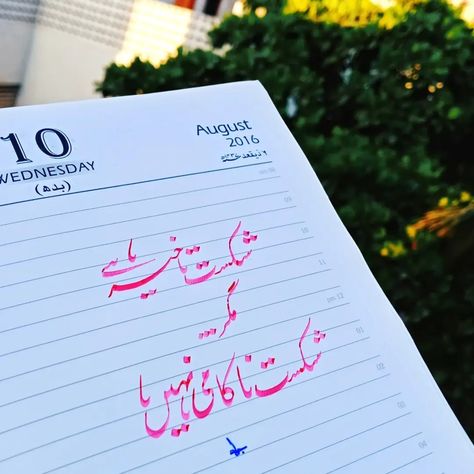 10
WEDNESDAY
(بدھ)
August
2016
09
10
11
pm 12
01
02
03
04
05
شکست تاخیر ہے
مگر...
شکست ناکامی نہیں